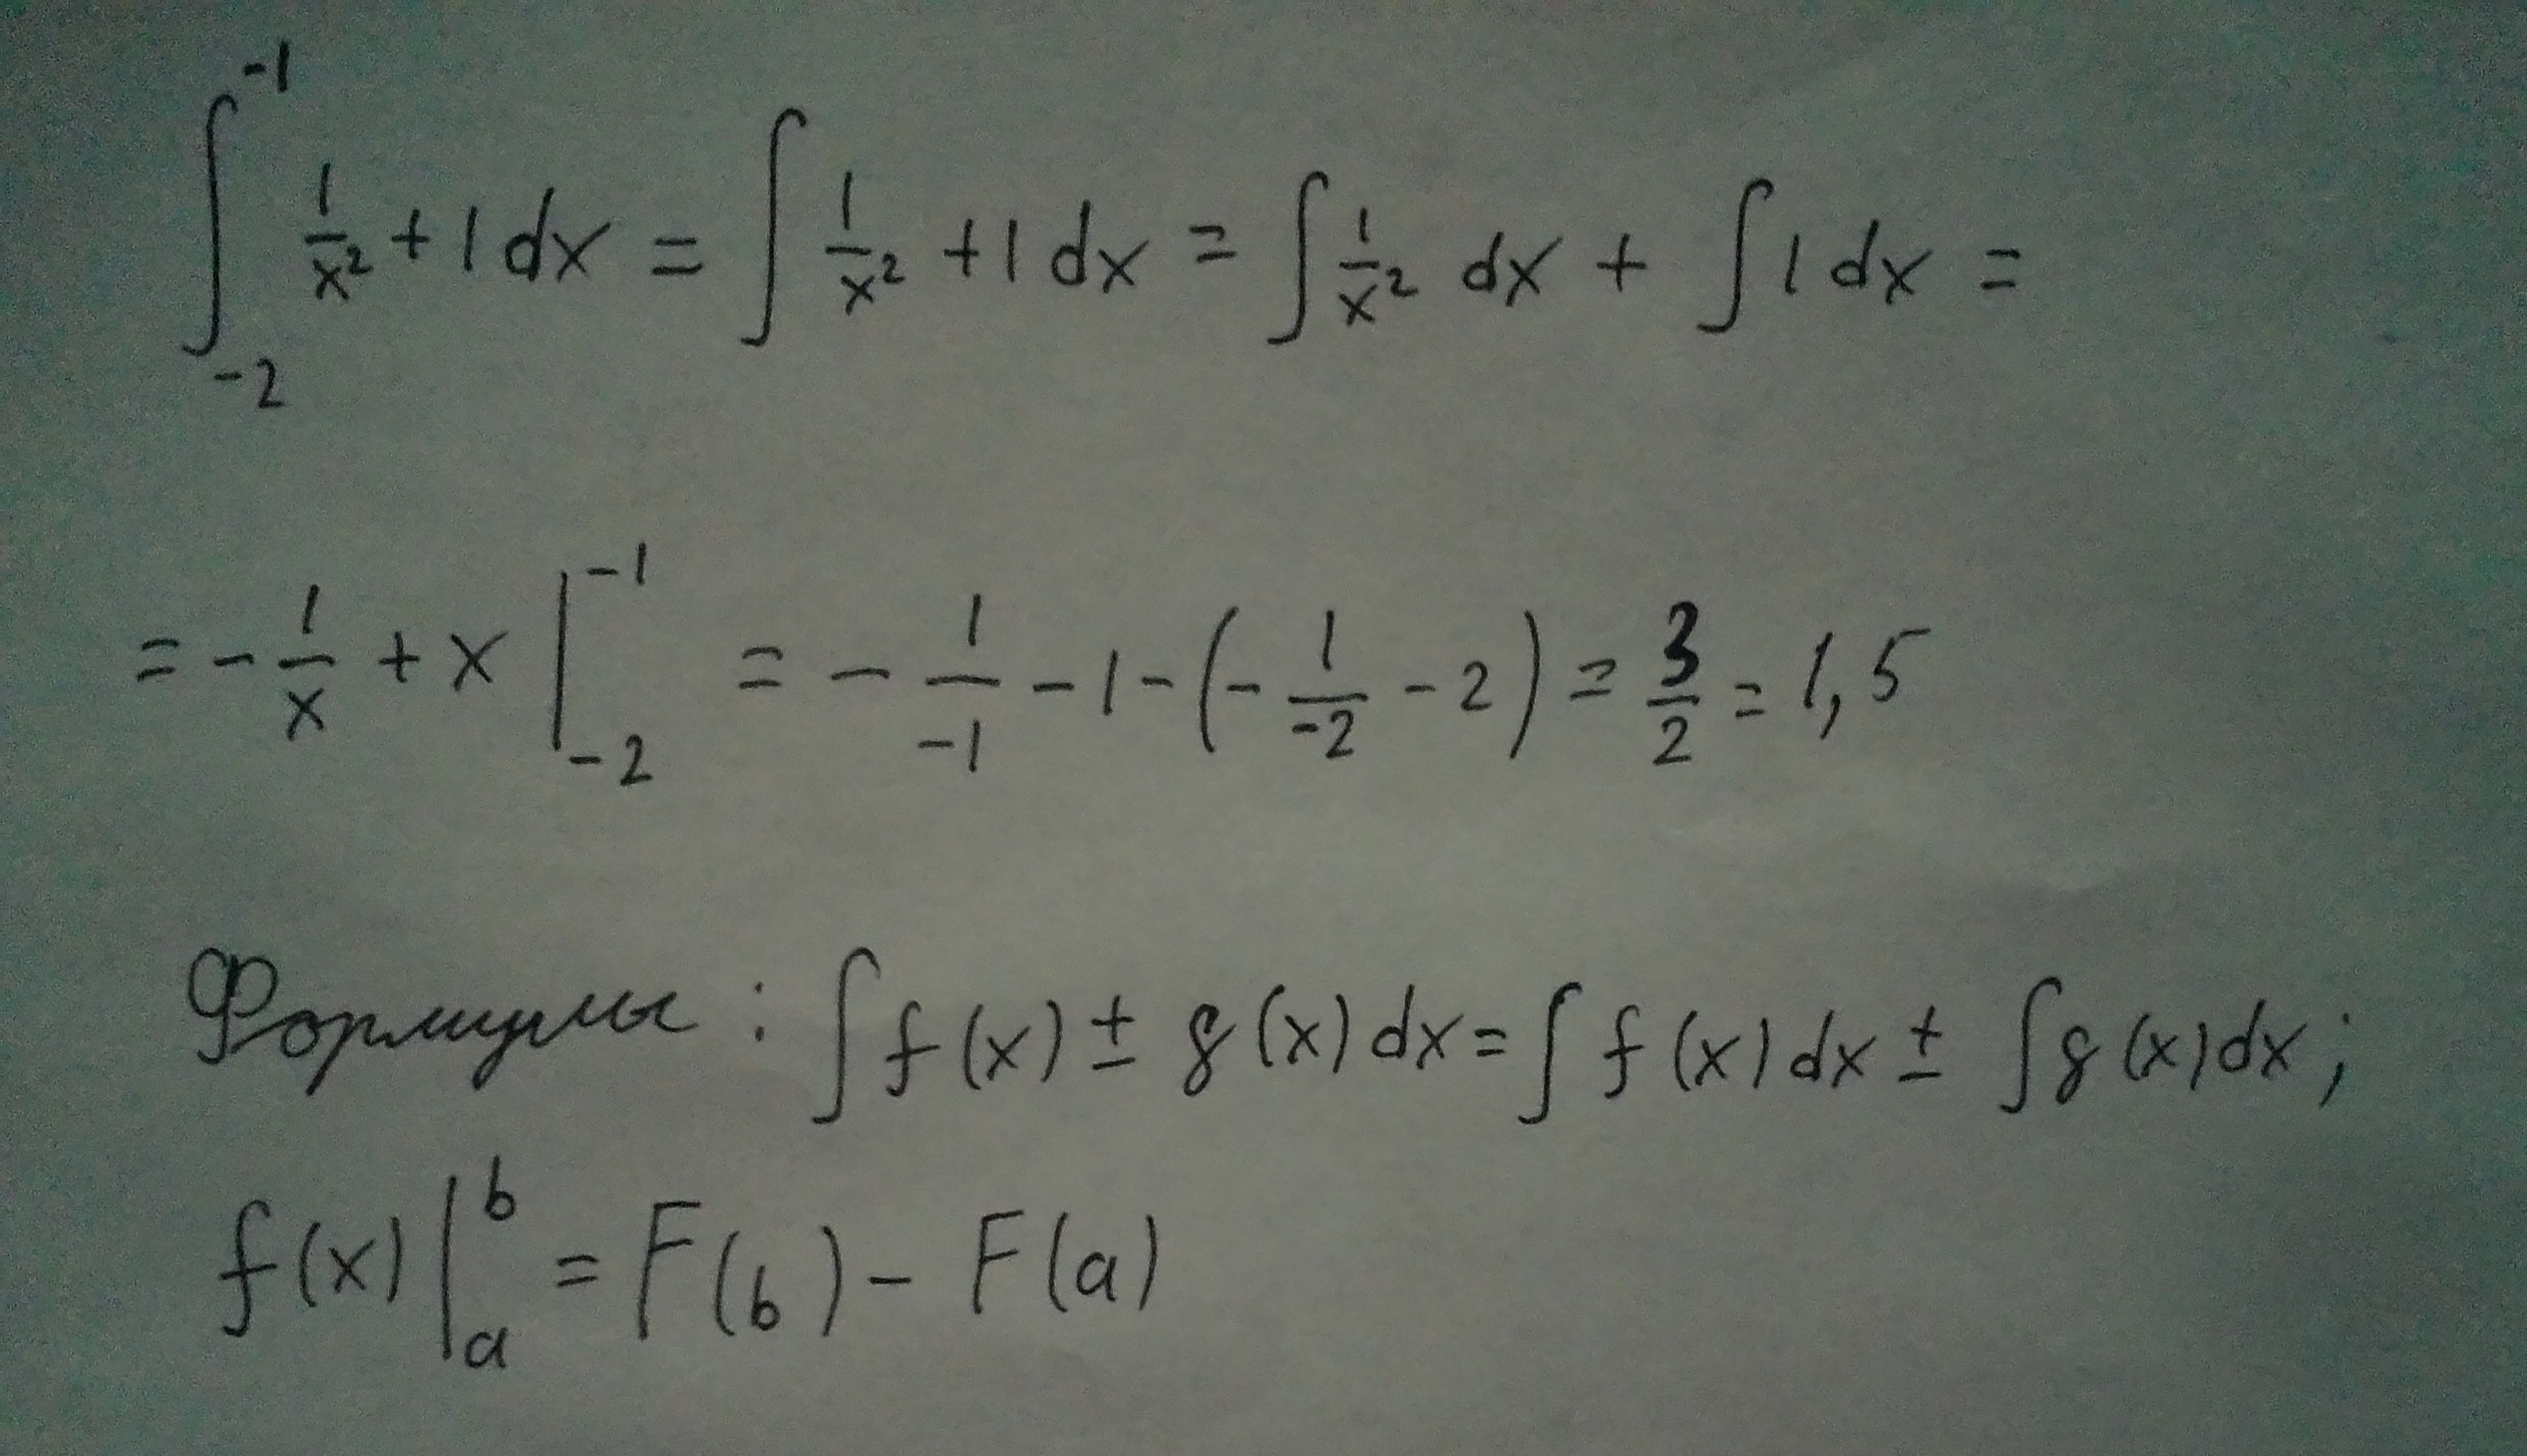 ∫_{-2}^{-1} 1/x² + 1 dx = ∫ 1/x² + 1 dx = ∫ 1/x² dx + ∫ 1 dx =
= - 1/x + x |_{-2}^{-1} = - 1/-1 - 1 - (- 1/-2 - 2) = 3/2 = 1,5
Формулы : ∫ f(x) ± g(x) dx = ∫ f(x) dx ± ∫ g(x) dx ;
f(x) |_a^b = F(b) - F(a)